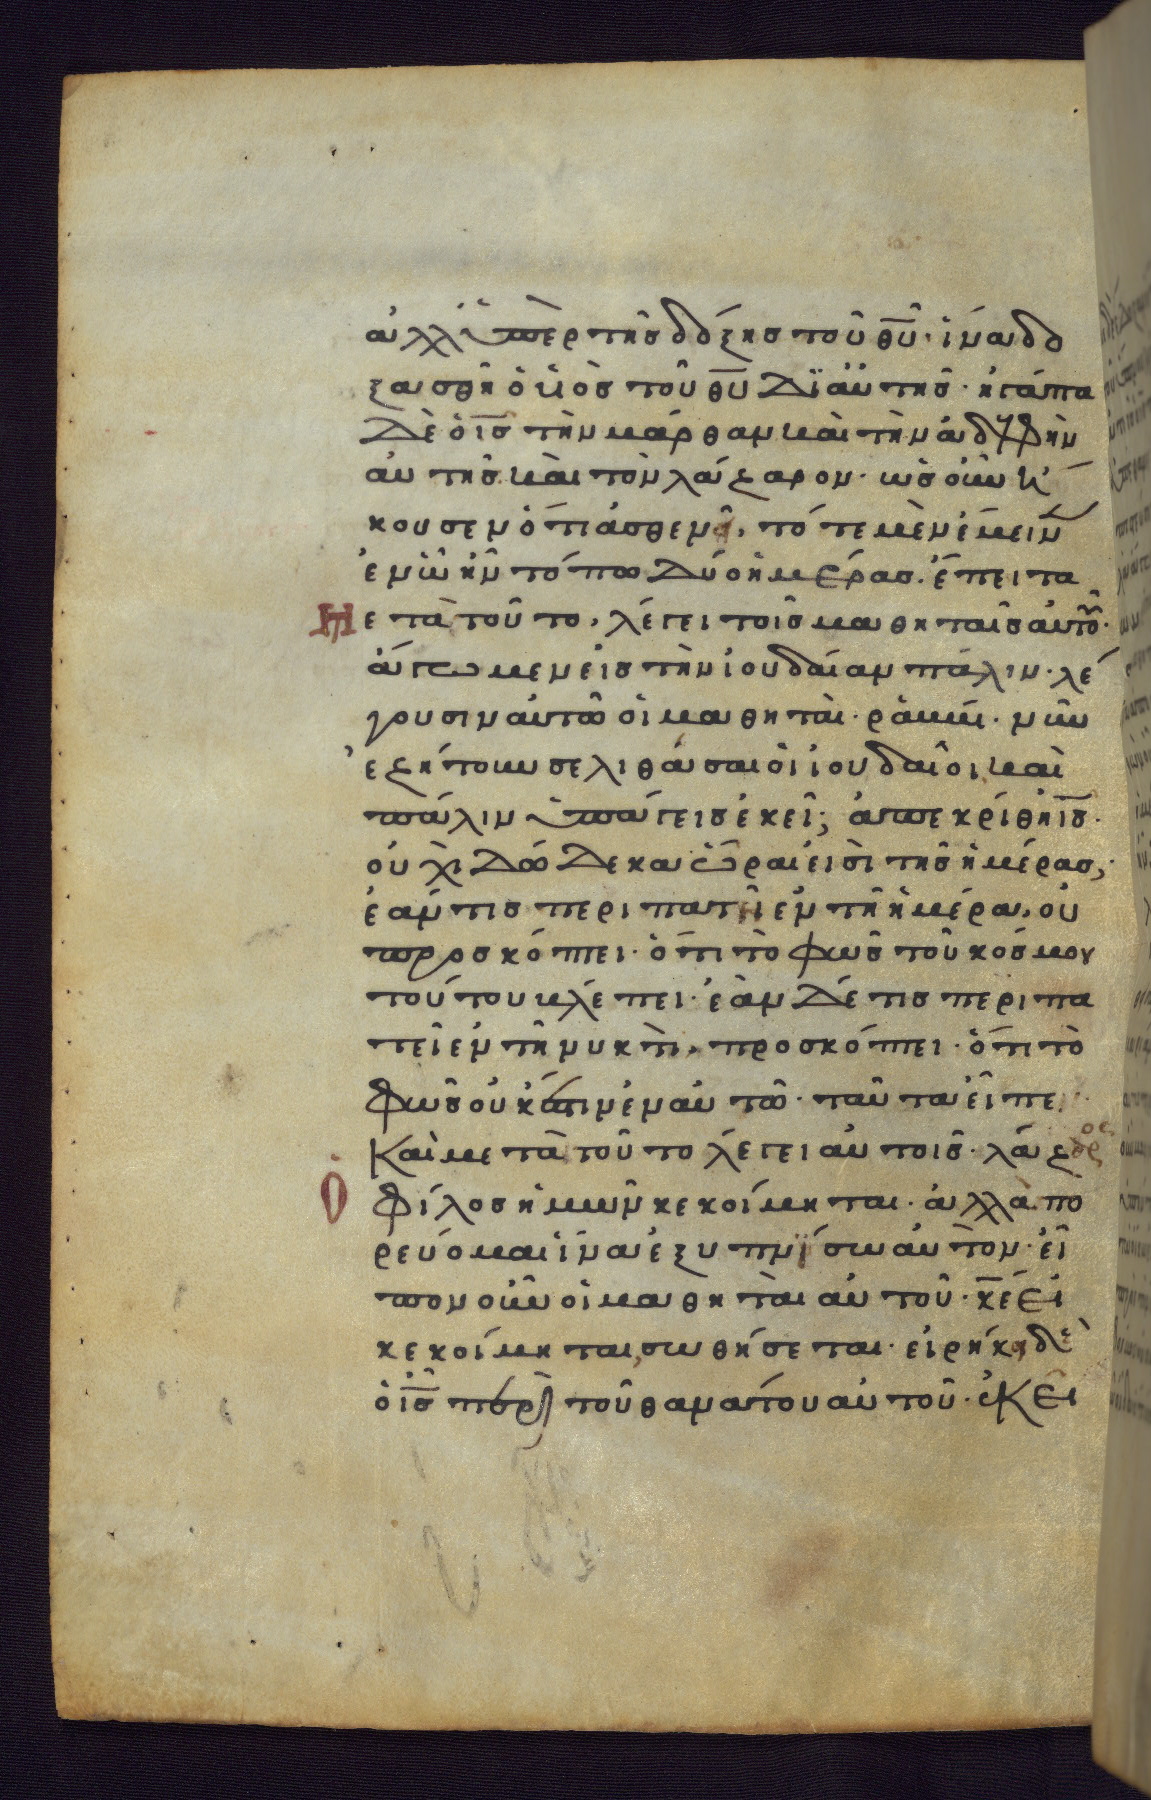 ἀλλ' ὑπὲρ τῆς δόξης τοῦ θ̅υ̅· ἵνα δο
ξασθῆ ὁ υἱὸς τοῦ θ̅υ̅ δι' αὐτῆς· ἠγάπα
δὲ ὁ ι̅ς̅ τὴν μάρθαν καὶ τὴν ἀδελφὴν
αὐτῆς καὶ τὸν λάζαρον· ὡς οὖν ἤ
κουσεν ὅτι ἀσθενεῖ, τότε μὲν ἔμεινεν
ἐν ὧ ἦν τόπω δύο ἡμέρας· ἔπειτα
Μετὰ τοῦτο, λέγει τοῖς μαθηταῖς αὐτοῦ·
ἄγωμεν εἰς τὴν ἰουδαίαν πάλιν· λέ
γουσιν αὐτῶ οἱ μαθηταὶ· ῥαββί· νῦν
ἐζήτουν σε λιθάσαι οἱ ἰουδαῖοι καὶ
πάλιν ὑπάγεις ἐκεῖ; ἀπεκρίθη ι̅ς̅·
οὐχὶ δώδεκα ὧραί εἰσὶ τῆς ἡμέρας;
ἐάν τις περιπατῆ ἐν τῆ ἡμέρα, οὐ
προσκόπτει· ὅτι τὸ φῶς τοῦ κόσμου
τούτου βλέπει· ἐὰν δέ τις περιπα
τεῖ ἐν τῆ νυκτὶ, προσκόπτει· ὅτι τὸ
φῶς οὐκ ἔστιν ἐν αὐτῶ· ταῦτα εἶπε
Καὶ μετὰ τοῦτο λέγει αὐτοῖς· λάζαρος
Ὁ φίλος ἡμῶν κεκοίμηται· ἀλλὰ πο
ρεύομαι ἵνα ἐξυπνίσω αὐτὸν· εἶ
πον οὖν οἱ μαθηταὶ αὐτοῦ· κ̅ε̅ εἰ
κεκοίμηται, σωθήσεται· εἰρήκει δὲ
ὁ ι̅ς̅ περὶ τοῦ θανάτου αὐτοῦ· ἐκεῖ